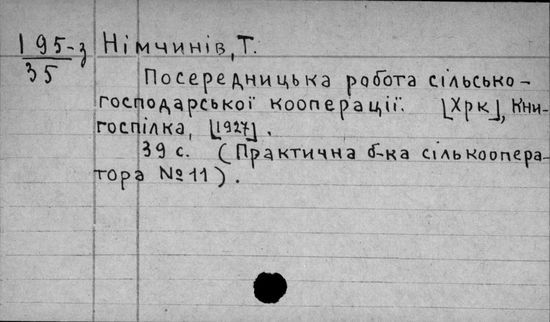 195-з Німчинів, Т.
35
Посередницька робота сільсько-
господарської кооперації. [Хрк], Кни-
госпілка, [1927].
39 с. (Практична б-ка сількоопера-
тора №11).